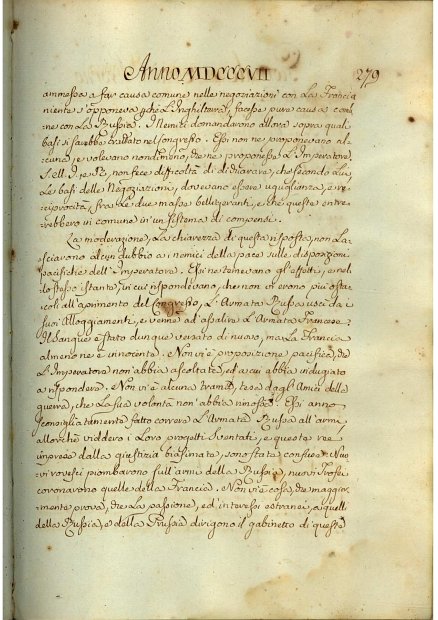 ANNO MDCCCVII 279
ammessa a far causa comune nelle negoziazioni con La Francia
niente s'opponeva che L'Inghilterra, facesse pure causa comu
ne con La Russia. I Nemici domandarono allora sopra quali
basi si sarebbe trattato nel Congresso. Essi non ne proponevano al
cuna, e volevano nondimeno, che ne proponesse L'Imperatore.
S. e R. non fece difficoltà di dichiarare, che secondo Lui
Le basi delle Negoziazioni, dovevano essere uguaglianza, e re
ciprocità, fra Le due masse belligeranti, e che queste entre
rebbero in comune in un sistema di compensi.
La moderazione, La chiarezza di questa risposta, non La
sciarono alcun dubbio a i nemici della pace sulle disposizioni
pacifiche dell'Imperatore. Essi ne temevano gl'effetti, e nel
lo stesso istante, in cui rispondevano, che non v'erono più osta
coli all'aprimento del Congresso, L'Armata Russa uscì da i
suoi Alloggiamenti, e venne ad assalire L'Armata Francese.
Il Sangue è stato dunque versato di nuovo, ma La Francia
almeno ne è innocente. Non vi è proposizione pacifica, che
L'Imperatore non abbia ascoltata, ed a cui abbia indugiato
a rispondere. Non vi è alcuna trama, tesa dagli Amici della
guerra, che La sua volontà non abbia rimossa. Essi anno
sconsigliatamente fatto correre L'Armata Russa all'armi,
allorchè viddero i Loro progetti sventati, e queste ree
imprese dalla giustizia biasimate, sono state confuse. Nuo
vi rovesci piombarono sull'armi della Russia, nuovi Trofei
coronavano quelle della Francia. Non vi è cosa, che maggior
mente prova, che La passione, ed interessi estranei, a quelli
della Russia, e della Prussia dirigono il gabinetto di queste